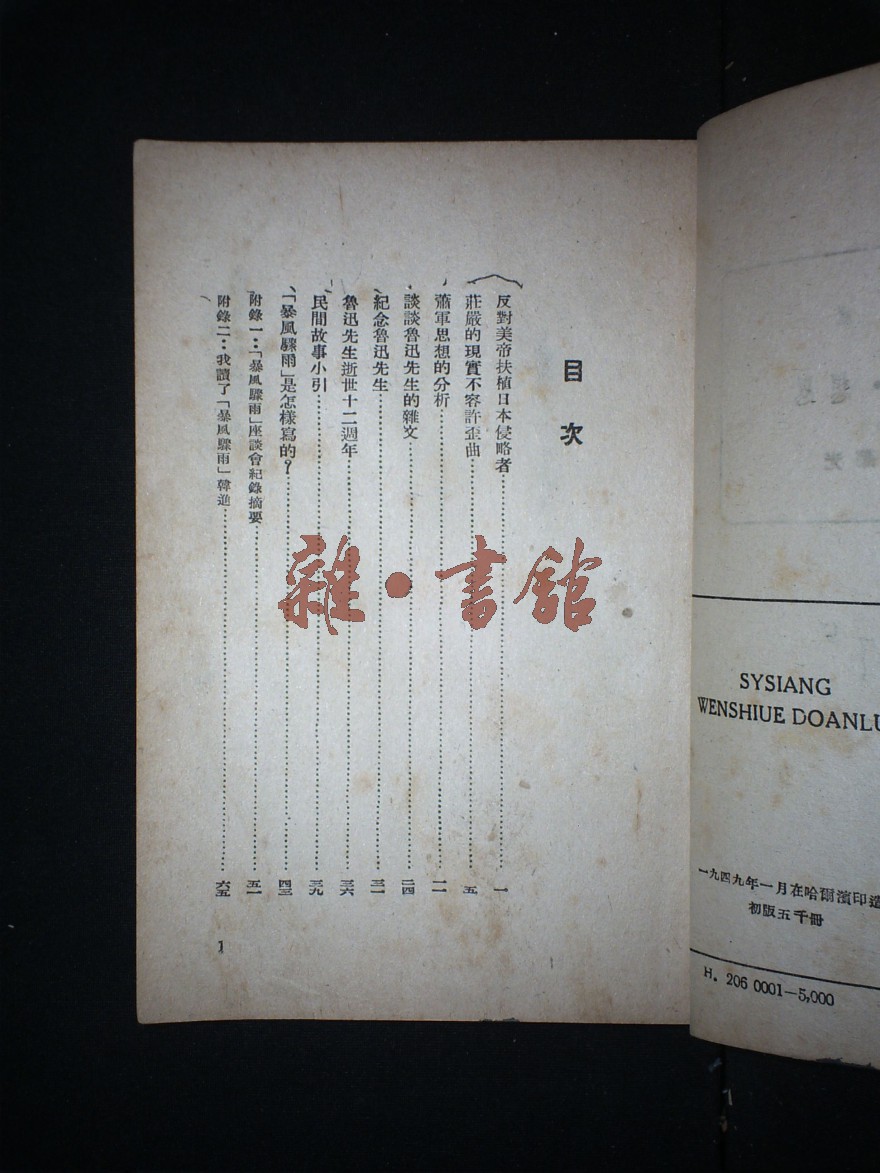 目次
反對美帝扶植日本侵略者……一
莊嚴的現實不容許歪曲……五
蕭軍思想的分析……一一
談談魯迅先生的雜文……二四
紀念魯迅先生……三一
魯迅先生逝世十二週年……三六
民間故事小引……三九
「暴風驟雨」是怎樣寫的？……四三
附錄一：「暴風驟雨」座談會紀錄摘要……五一
附錄二：我讀了「暴風驟雨」韓進……六五
1
雜·書館
SYSIANG
WENSHIUE DOANLU
一九四九年一月在哈爾濱印造
初版五千冊
H. 206 0001—5,000